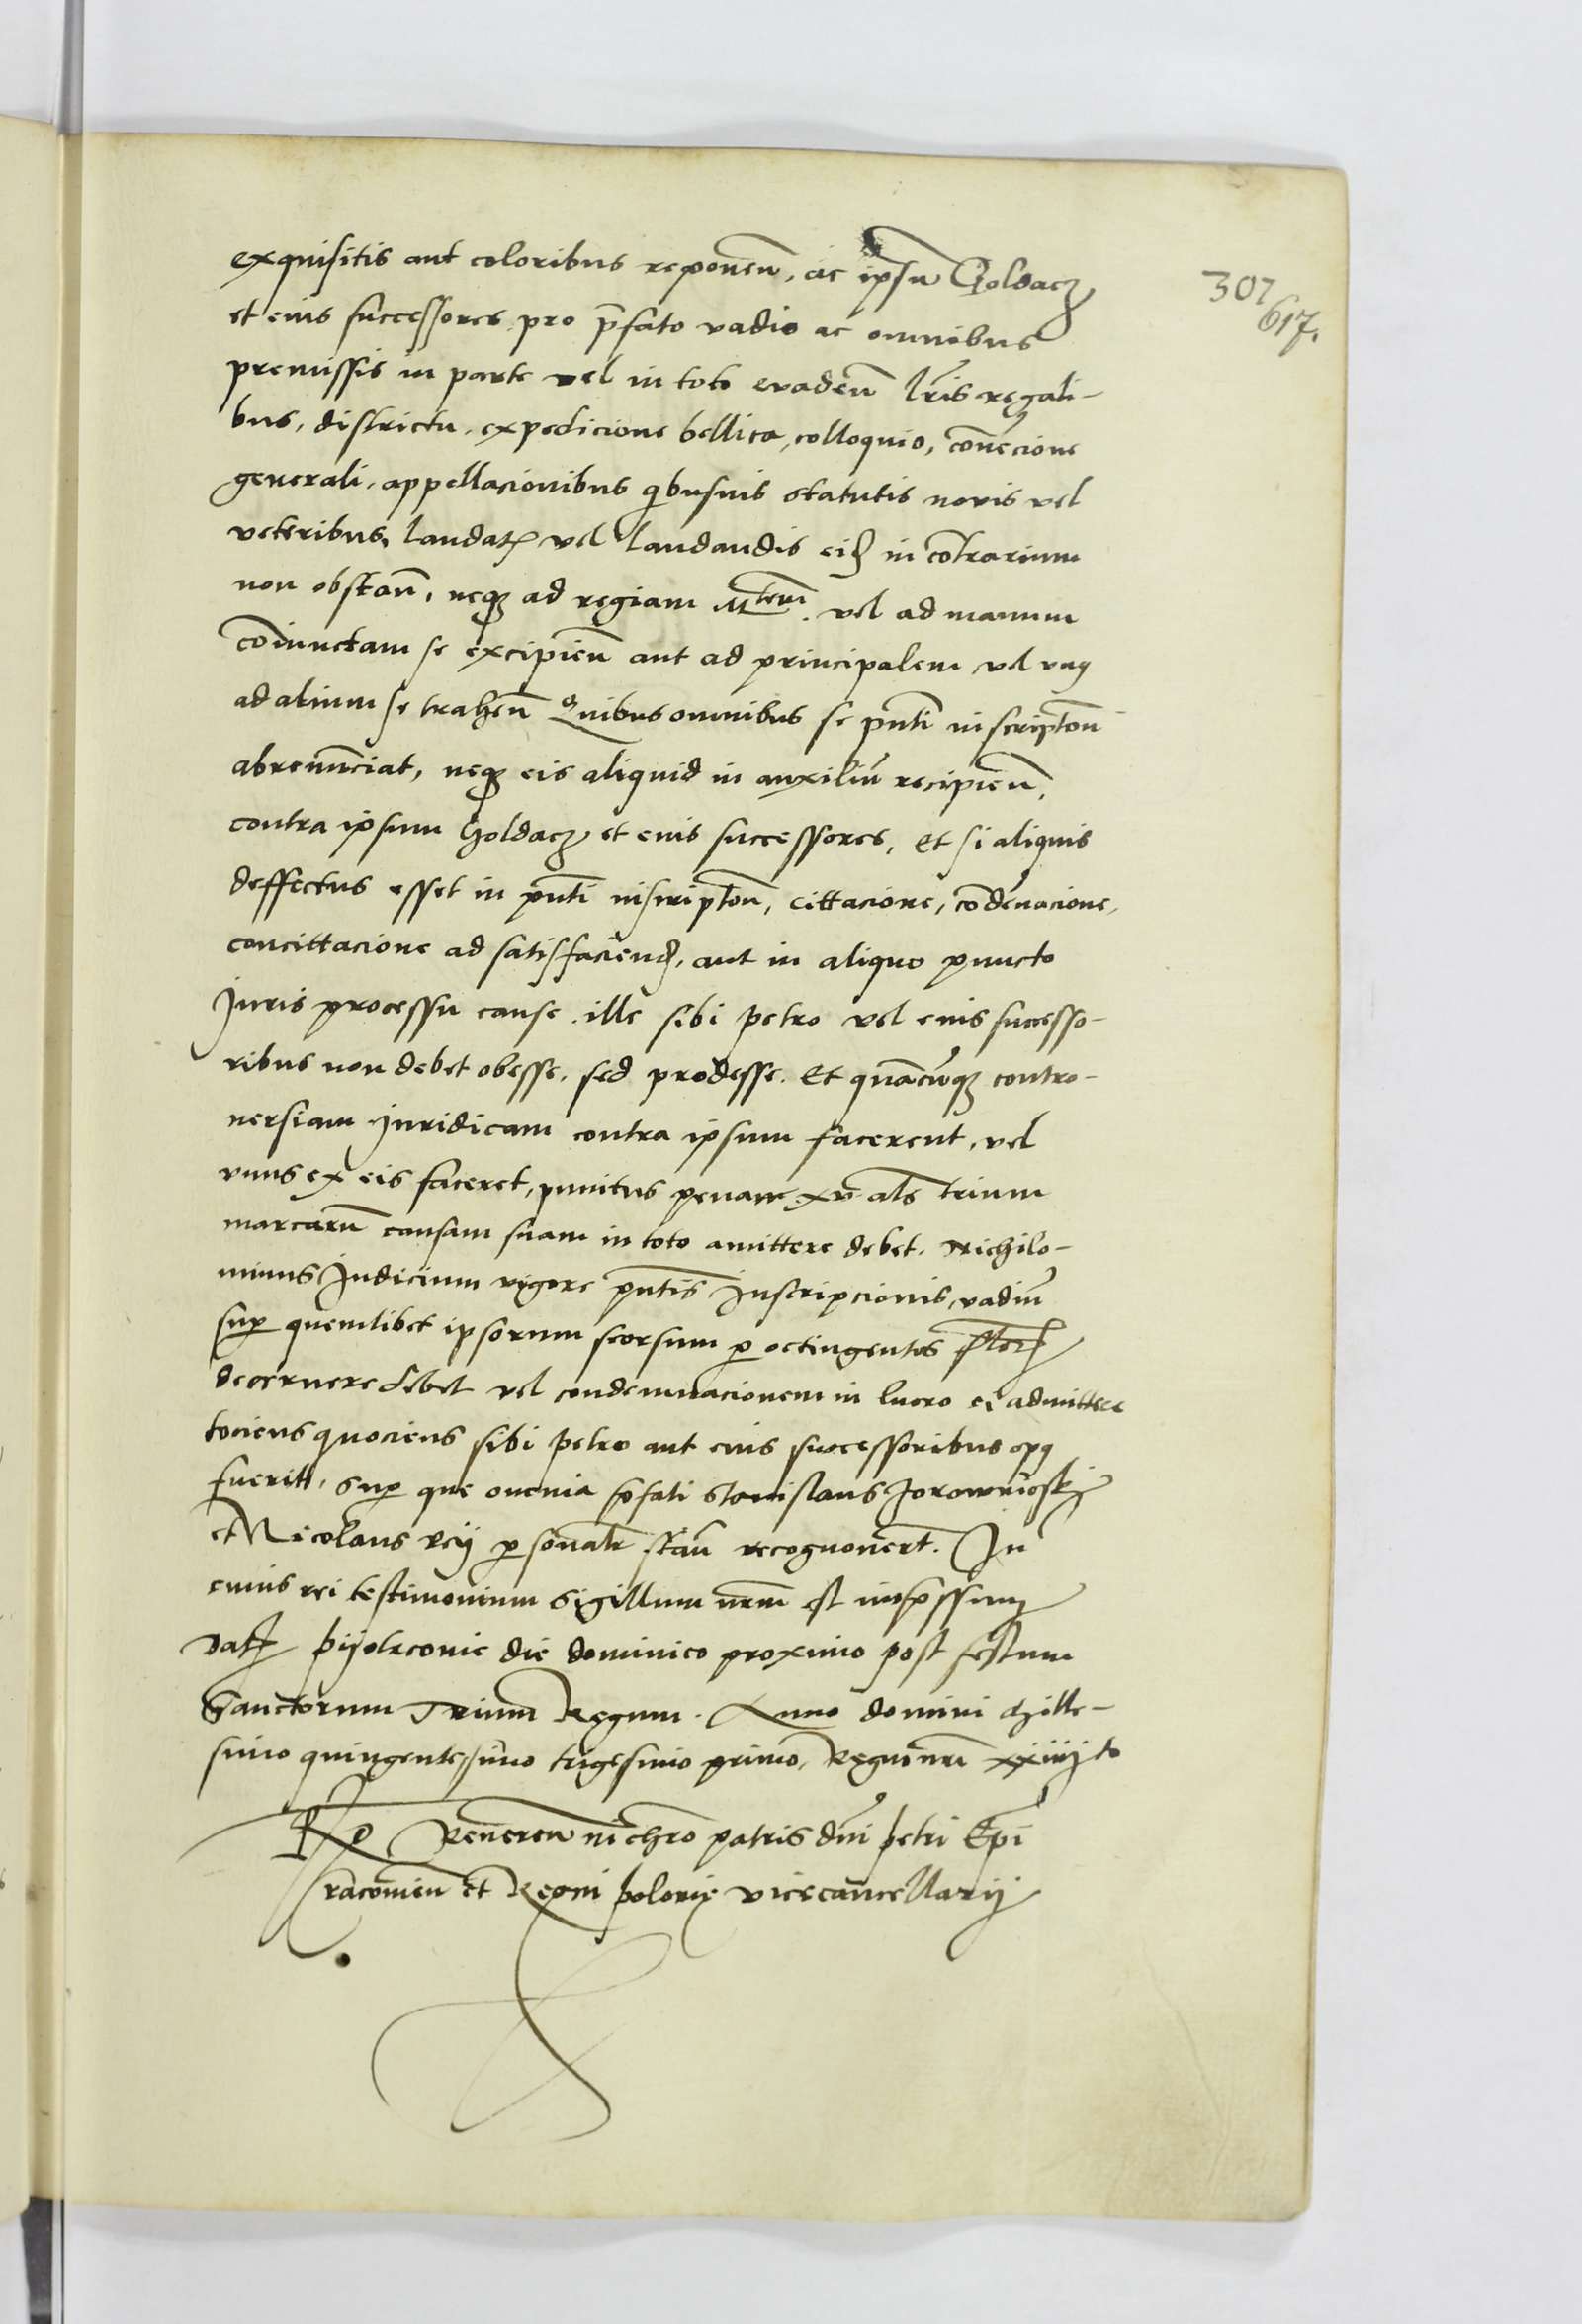 exquisitis aut coloribus reponen̄, ac ipsū Goldacz
307
617.
et eius successores pro p̄fato vadio ac omnibus
premissis in parte vel in toto evaden̄ lr̄is regali-
bus, districtu, expedicione bellica, colloquio, convēcione
generali, appellacionibus qibusvis statutis novis vel
veteribus, laudatꝭ vel laudandis eisd in cōtrarium
non obstan̄, neqꝫ ad regiam Mtem̄. vel ad manum
cōiunctam se excipien̄ aut ad principalem vel vnꝰ
ad alium se trahen̄ Quibus omnibus se pn̄ti inscriptōn
abrenūnciat, neqꝫ eis aliquid in auxiliū recipien̄,
contra ipsum Goldacz et eius successores, Et si aliquis
deffectus esset in pn̄ti inscriptōn, cittacione, cōdēnacione,
concittacione ad satisfaciend, aut in aliquo puncto
Juris processu cause. ille sibi petro vel eius successo-
ribus non debet obesse, sed prodesse. Et quācūqꝫ contro-
versiam Juridicam contra ipsum facerent, vel
vnus ex eis faceret, punitus penam xv als̄ trium
marcarū causam suam in toto amittere debet. Nichilo-
minus Judicium vigore pn̄tis Inscripcionis, vadiū
sup quemlibet ipsorum seorsum ꝑ octingentos flor
decernere debet vel condemnacionem in lucro ei admittere
tociens quociens sibi petro aut eius successoribus opꝰ
fuerit, Sup que omnia p̄fati Stanislaus Jorowiczskj
et Nicolaus Rey ꝑsonalr stan̄ recognovert. In
cuius rei testimonium Sigillum nr̄m est imp̄ssum
Datꝭ pijotrcovie die dominico proximo post festum
Sanctorum Trium Regum. Anno domini Mille-
simo quingentesimo trigesimo primo, Regni nr̄i xxiiijto
Rō Reveren in chro patris dn̄i petri Epī
Cracovien et Regni polonie vicecancellarij